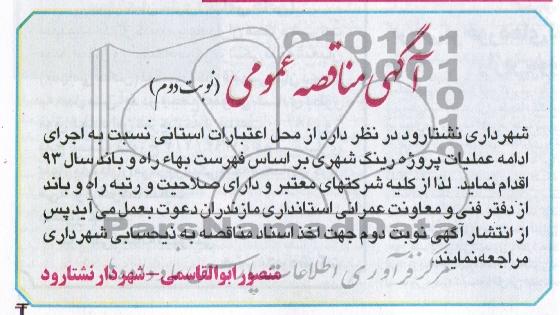 آگهی مناقصه عمومی (نوبت دوم)
شهرداری نشتارود در نظر دارد از محل اعتبارات استانی نسبت به اجرای
ادامه عملیات پروژه رینگ شهری بر اساس فهرست بهاء راه و باند سال ۹۳
اقدام نماید. لذا از کلیه شرکتهای معتبر و دارای صلاحیت و رتبه راه و باند
از دفتر فنی و معاونت عمرانی استانداری مازندران دعوت بعمل می آید پس
از انتشار آگهی نوبت دوم جهت اخذ اسناد مناقصه به ذیحسابی شهرداری
مراجعه نمایند.
منصور ابوالقاسمی - شهردار نشتارود
ParsNamadData
مرکز فرآوری اطلاعات پارس نماد داده ها